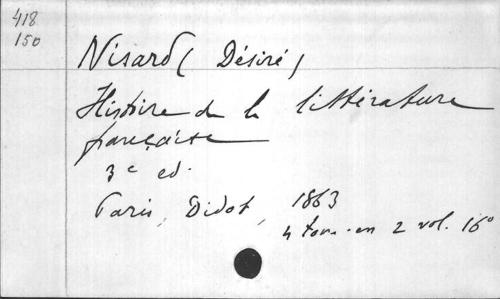 418
150
Nisard (Désiré)
Histoire de la littérature
française
3e ed.
Paris, Didot, 1863
4 tom. en 2 vol. 16°